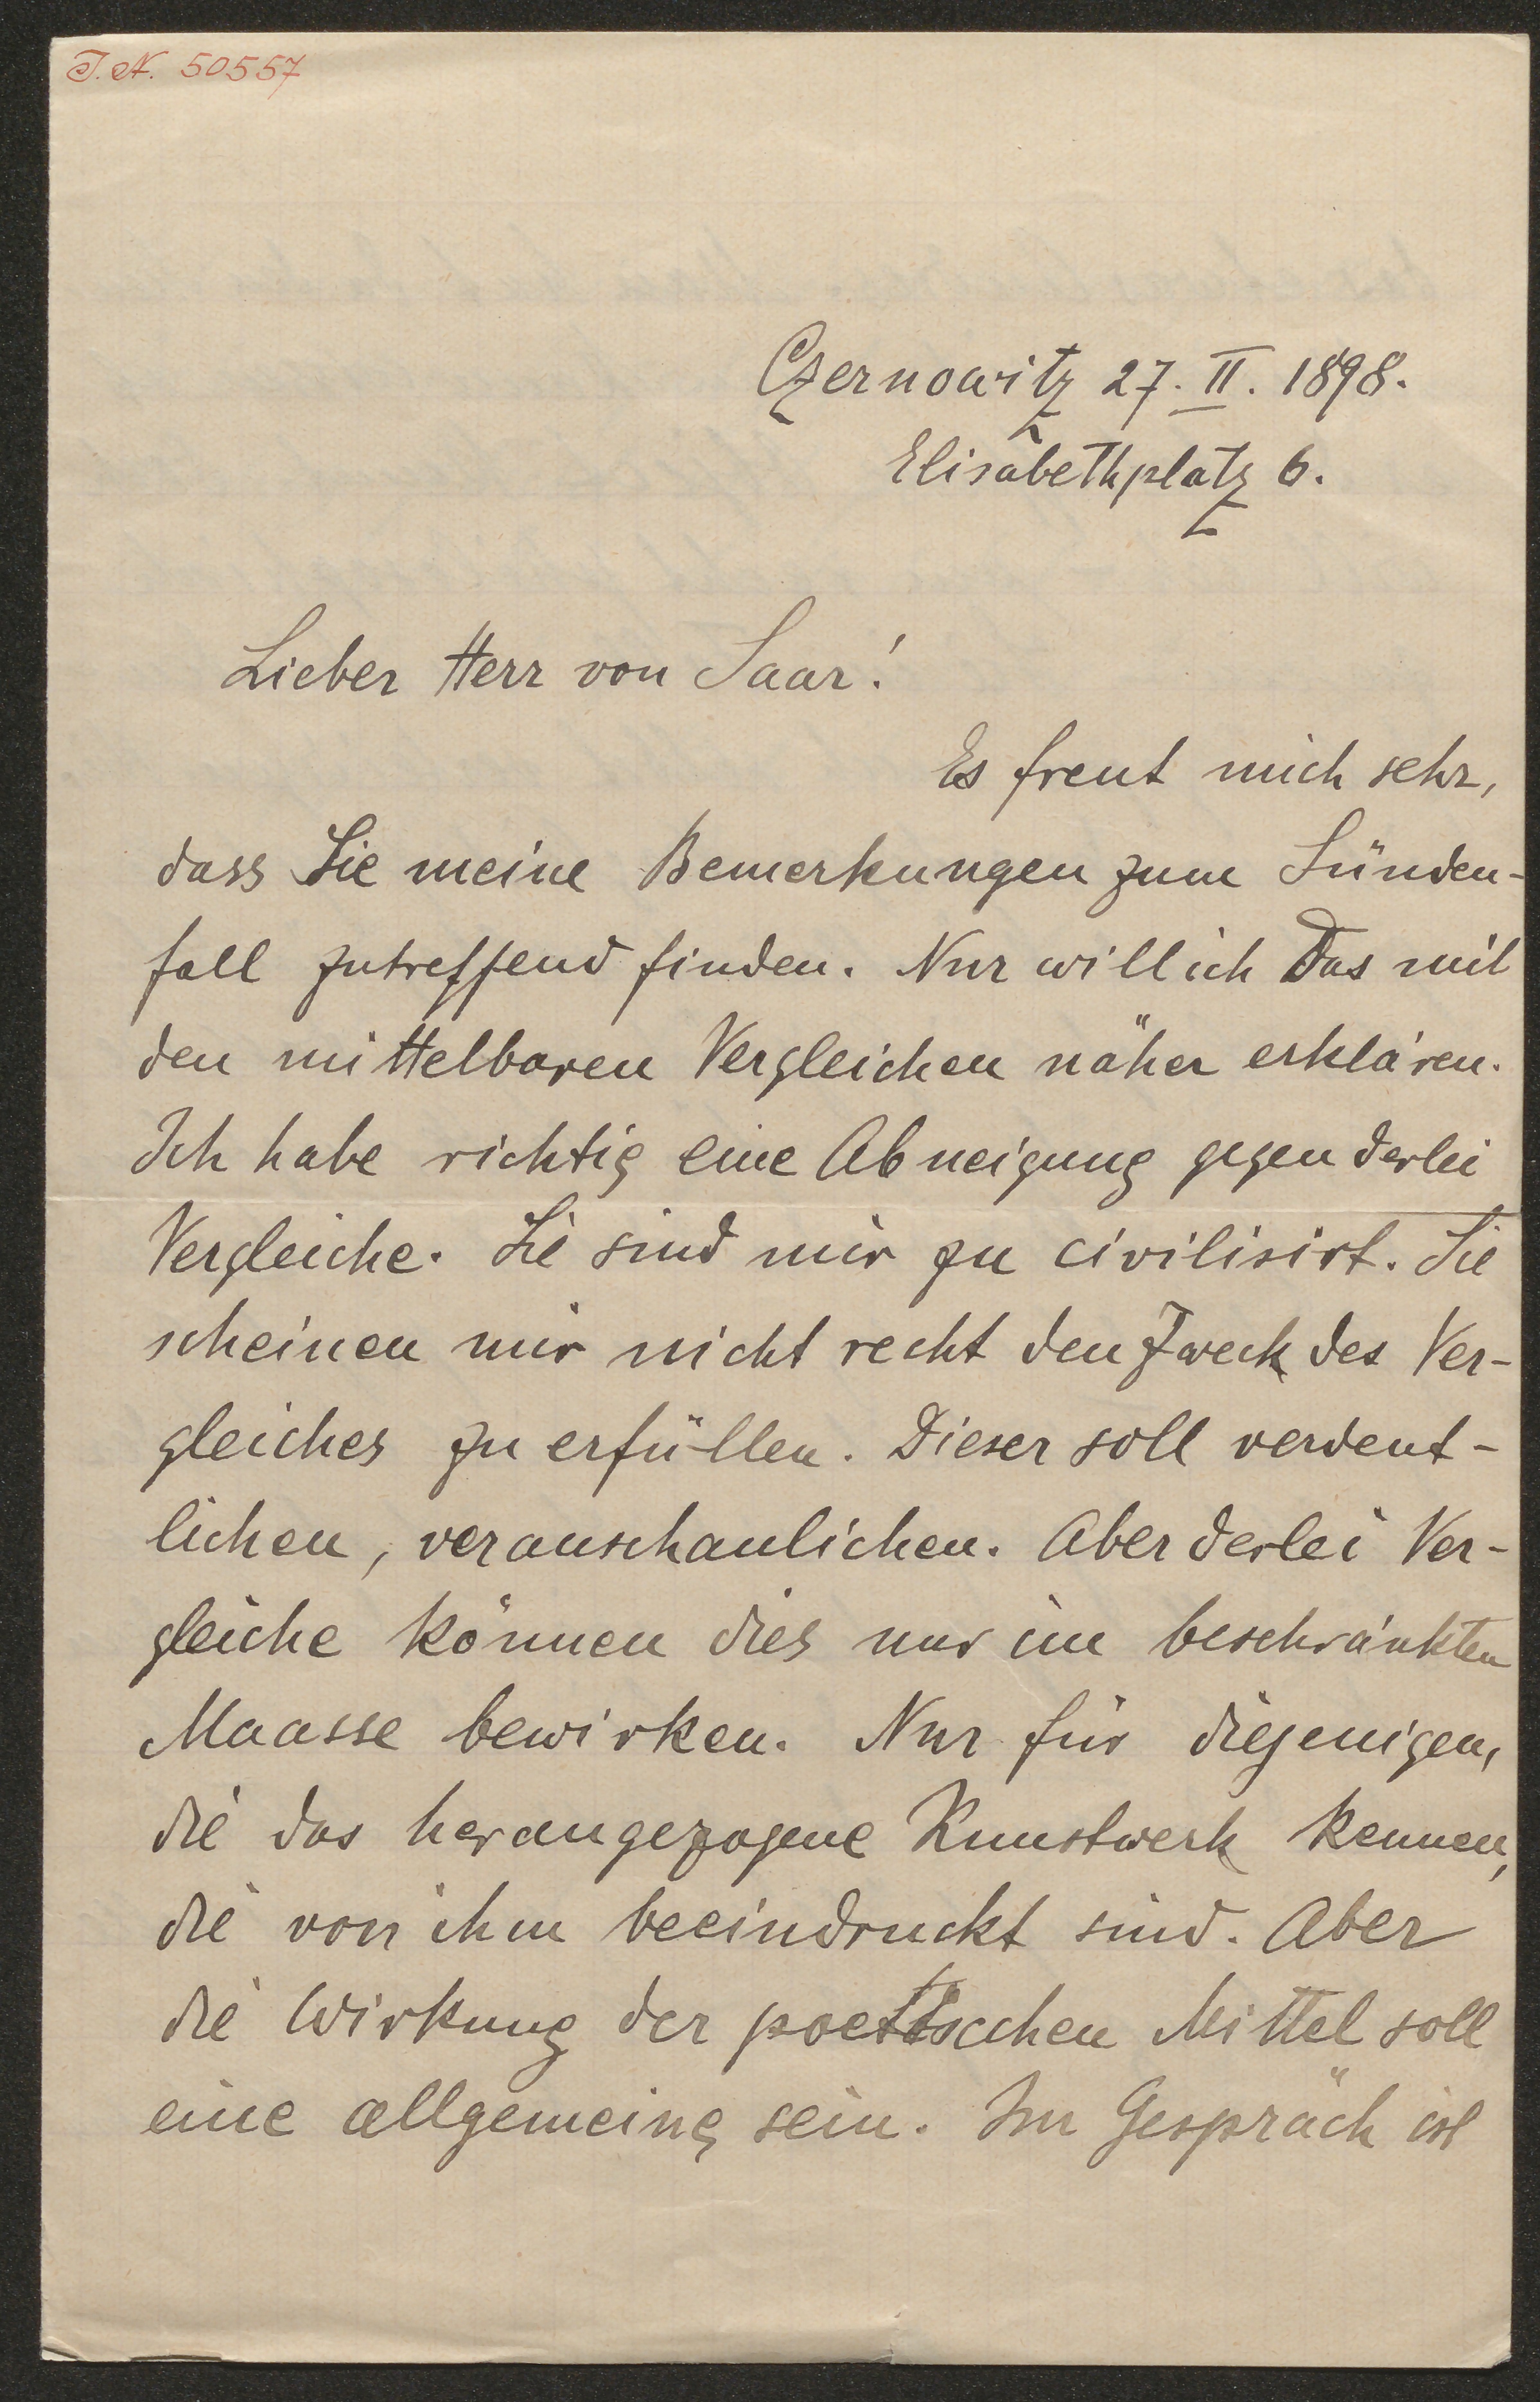 I. N. 50557
Czernowitz 27. II. 1898.
Elisabethplatz 6.
Lieber Herr von Saar!
Es freut mich sehr,
dass Sie meine Bemerkungen zum Sünden-
fall zutreffend finden. Nur will ich Das mit
den mittelbaren Vergleichen näher erklären.
Ich habe richtig eine Abneigung gegen derlei
Vergleiche. Sie sind mir zu civilisirt. Sie
scheinen mir nicht recht den Zweck des Ver-
gleiches zu erfüllen. Dieser soll verdeut-
lichen, veranschaulichen. Aber derlei Ver-
gleiche können dies nur im beschränkten
Maasse bewirken. Nur für diejenigen,
die das herangezogene Kunstwerk kennen,
die von ihm beeindruckt sind. Aber
die Wirkung der poetischen Mittel soll
eine allgemeine sein. Im Gespräch ist